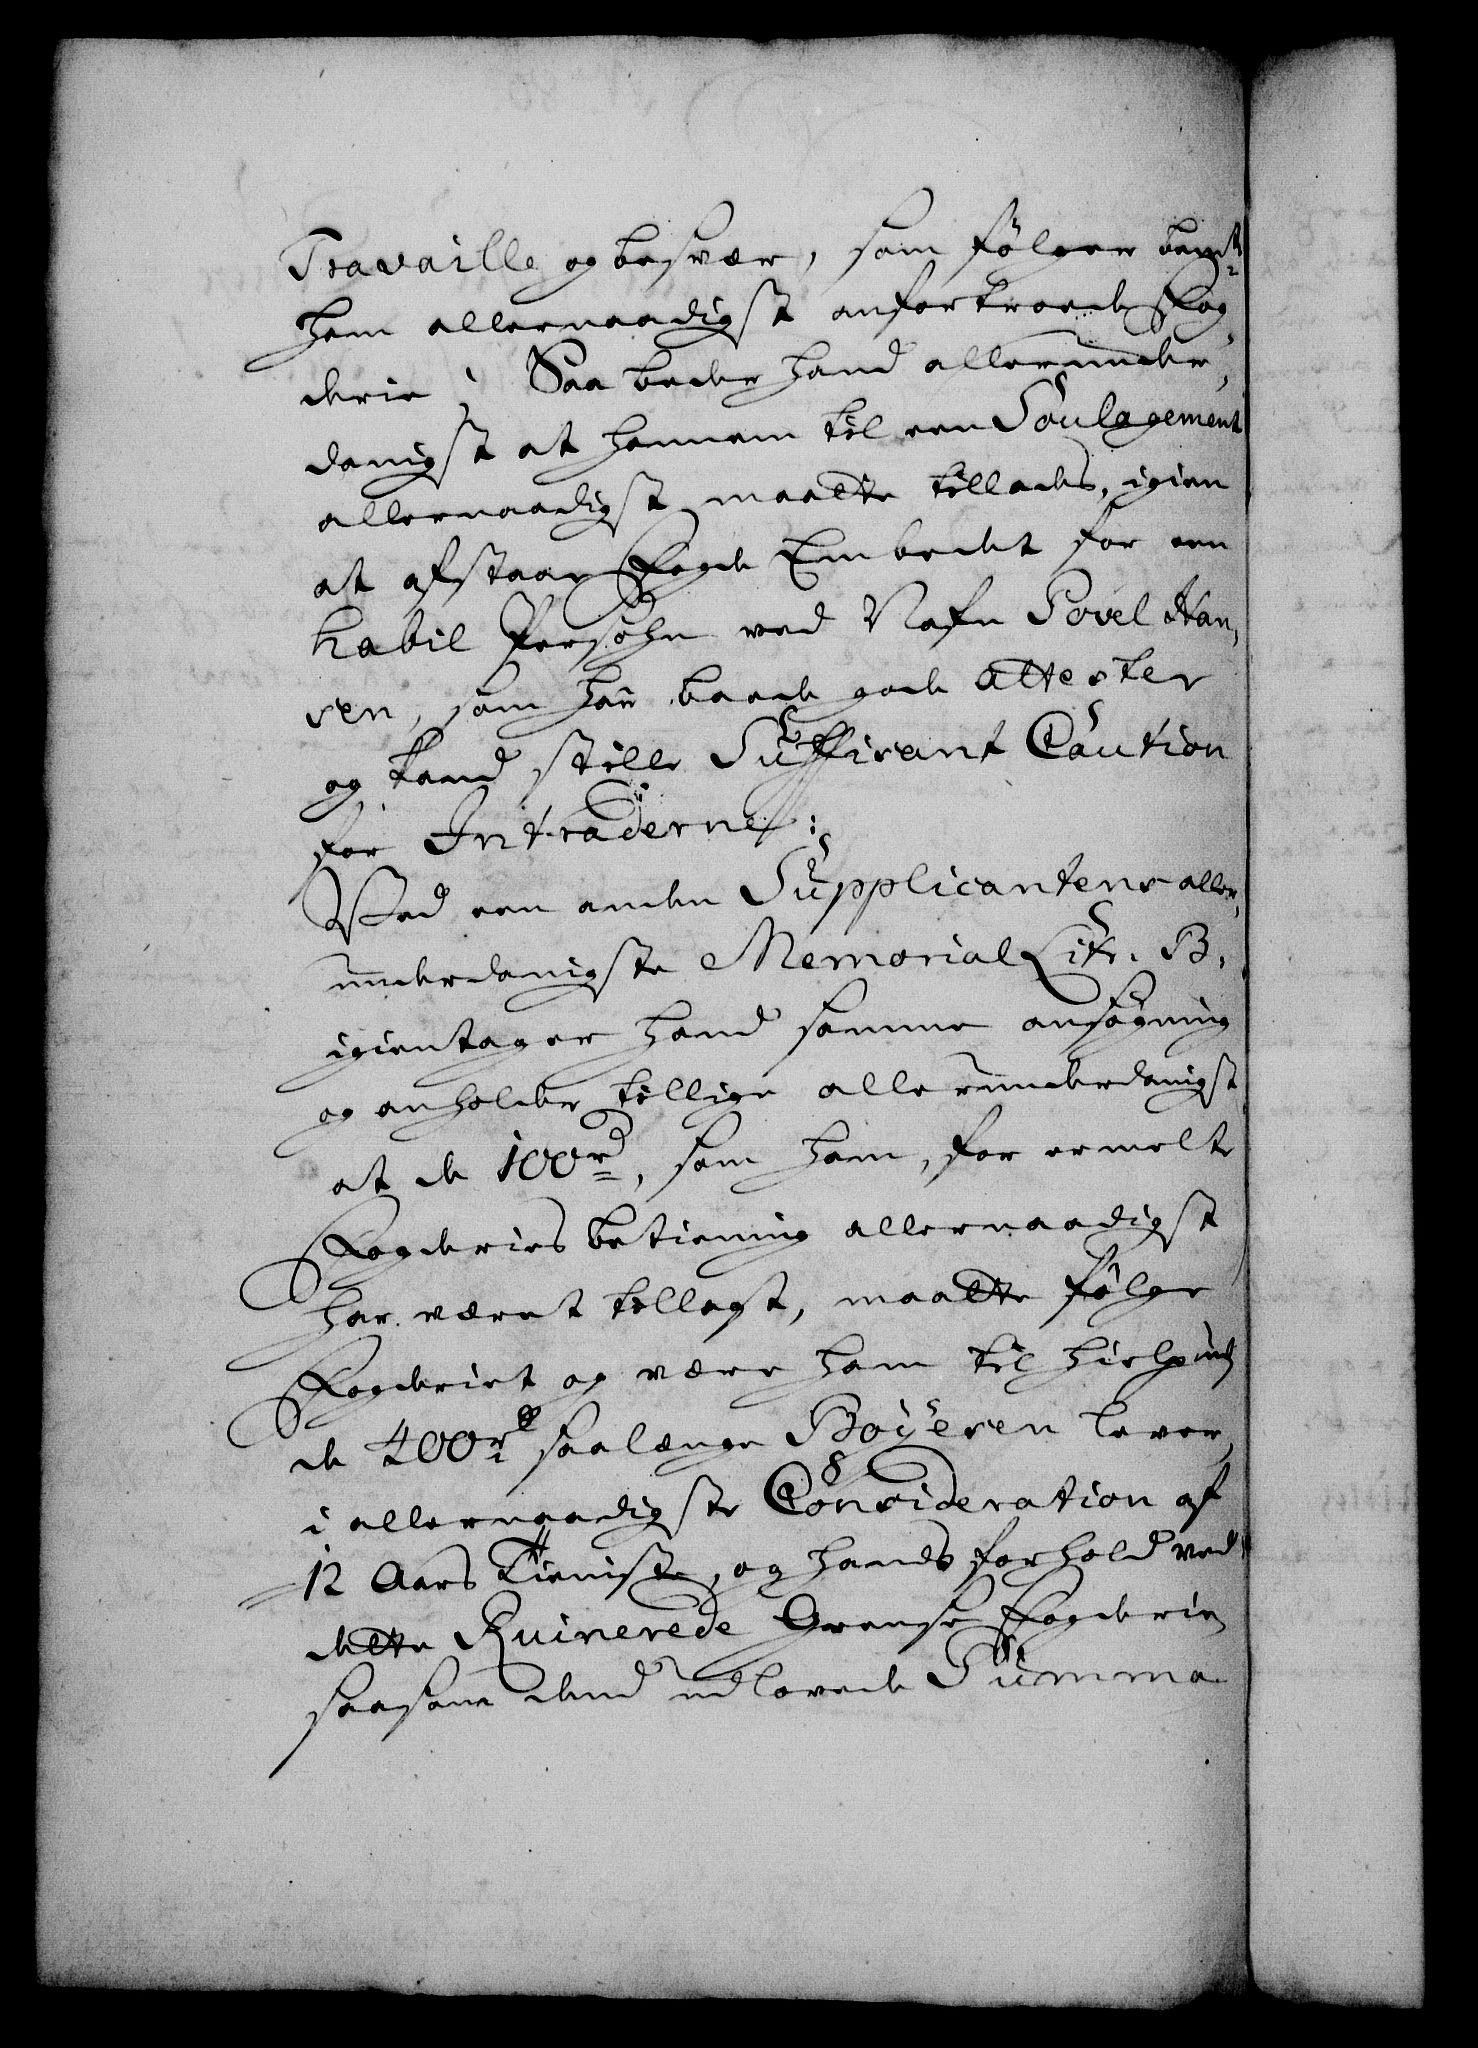 Travaille og besvær, som følger bemte
ham allernaadigst anfortroede Fog,
derie; Saa beder hand allerunder,
danigst at hannem til een Soulagement
allernaadigst maatte tillades, igien
at afstaae Fogde Embedet for een
habil Persohn ved Nafn Povel Han,
sen, som har baade gode attester
og kand stille Sufficant Caution
for Intraderne:
Ved een anden Supplicantens aller,
underdanigste Memorial Litr. B.
igientager hand samme ansøgning
og anholder tillige allerunderdanigst
at de 100rd, som ham, for ermelte
Fogderies betiening allernaadigst
har været tillagt, maatte følge
Fogderiet og være ham til hielp ind
de 400rd saalænge Bøyesen lever,
i allernaadigste Consideration af
12 Aars Tieniste, og hands forhold ved
dette Ruinerede Grense Fogderie
saasom dend udlovede Summa